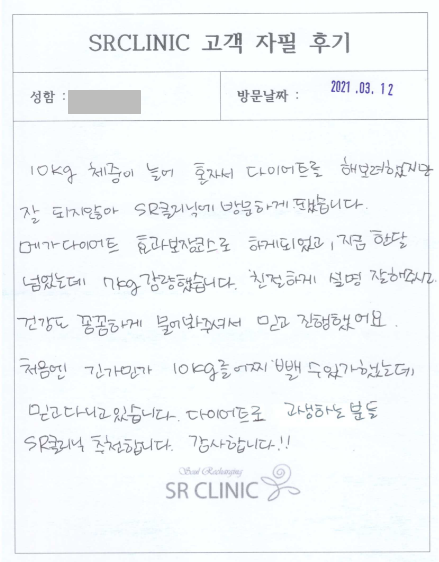 SRCLINIC 고객 자필 후기
성함 :
방문날짜 : 2021.03.12
10kg 체중이 늘어 혼자서 다이어트를 해보려했지만
잘 되지않아 SR클리닉에 방문하게 됐습니다.
메가다이어트 효과보장코스로 하게되었고, 지금 한달
넘었는데 7kg감량했습니다. 친절하게 설명 잘해주시고
건강도 꼼꼼하게 물어봐주셔서 믿고 진행했어요.
처음엔 긴가민가 10kg를어찌 뺄 수있가했는데
믿고다니고있습니다. 다이어트로 고생하는 분들
SR클리닉 추천합니다. 감사합니다!!
Soul Recharging
SR CLINIC